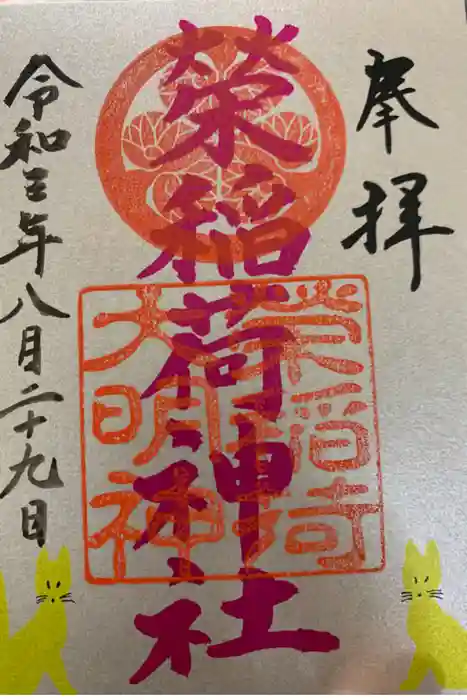 奉拝
榮稲荷神社
栄稲荷
大明神
令和三年八月二十九日